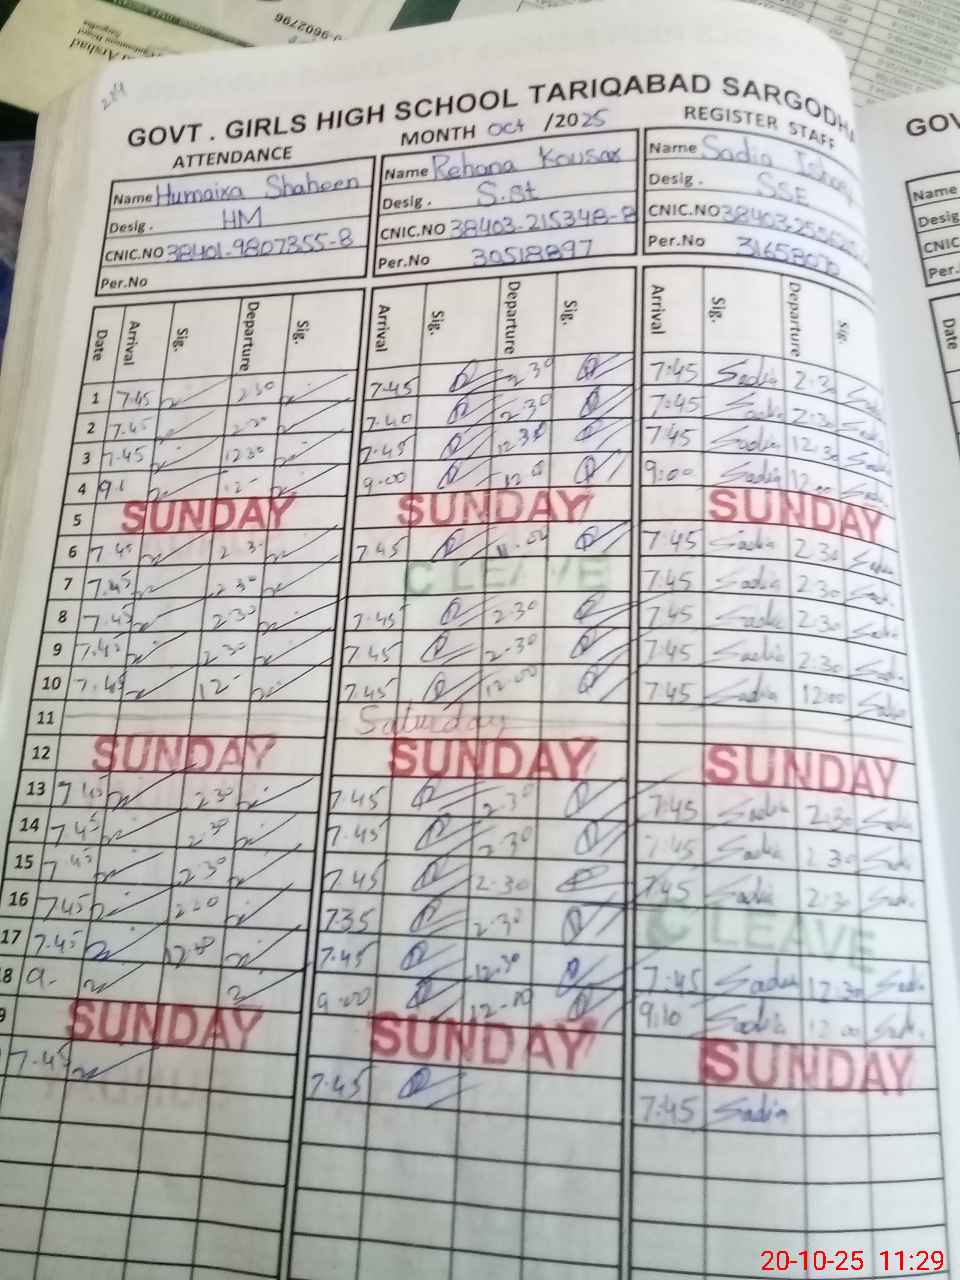 0-9602796
Arshad
Sargodha
GOVT . GIRLS HIGH SCHOOL TARIQABAD SARGODHA
ATTENDANCE MONTH Oct /2025 REGISTER STAFF
Name Humaira Shaheen Name Rehana Kousar Name Sadia
Desig. HM Desig. S.St Desig. SSE
CNIC.NO 38401-9807355-8 CNIC.NO 38403-215348-8 CNIC.NO
Per.No Per.No 30518897 Per.No
Date Arrival Sig. Departure Sig. Arrival Sig. Departure Sig. Arrival Sig. Departure Sig.
1 7.45 2 30 7.45 2 30 7:45 Sadia 2:3
2 7.45 7.40 2.30 7:45 Sadia 2:30
3 7.45 12 30 7.45 12.30 7:45 Sadia 12:3
4 9.00 12.00 9:00 Sadia 12.00
5 SUNDAY SUNDAY SUNDAY
6 7 45 2 3 7.45 7:45 Sadia 2:30
7 7.45 2 30 C LEAVE 7:45 Sadia 2:30
8 7.45 2.30 7.45 2.30 7:45 Sadia 2:30
9 7.45 2 30 7.45 2.30 7:45 Sadia 2:30
10 7.45 12 7.45 12.00 7:45 Sadia 12:00
11 Saturday
12 SUNDAY SUNDAY SUNDAY
13 7 45 2 30 7.45 2.30 7:45 Sadia 2:30
14 7.45 2.30 7.45 2.30 7:45 Sadia 2:30
15 7.45 2.30 7.45 2.30 7:45 Sadia 2:30
16 7.45 735 2.30 C LEAVE
17 7.45 7.45 12.30 7:45 Sadia 12:30
8 9. 9.00 9:10 Sadia 12.00
9 SUNDAY SUNDAY SUNDAY
7.45 7.45 7:45 Sadia
GOV
Name
Desig
CNIC
Per.
Date
20-10-25 11:29